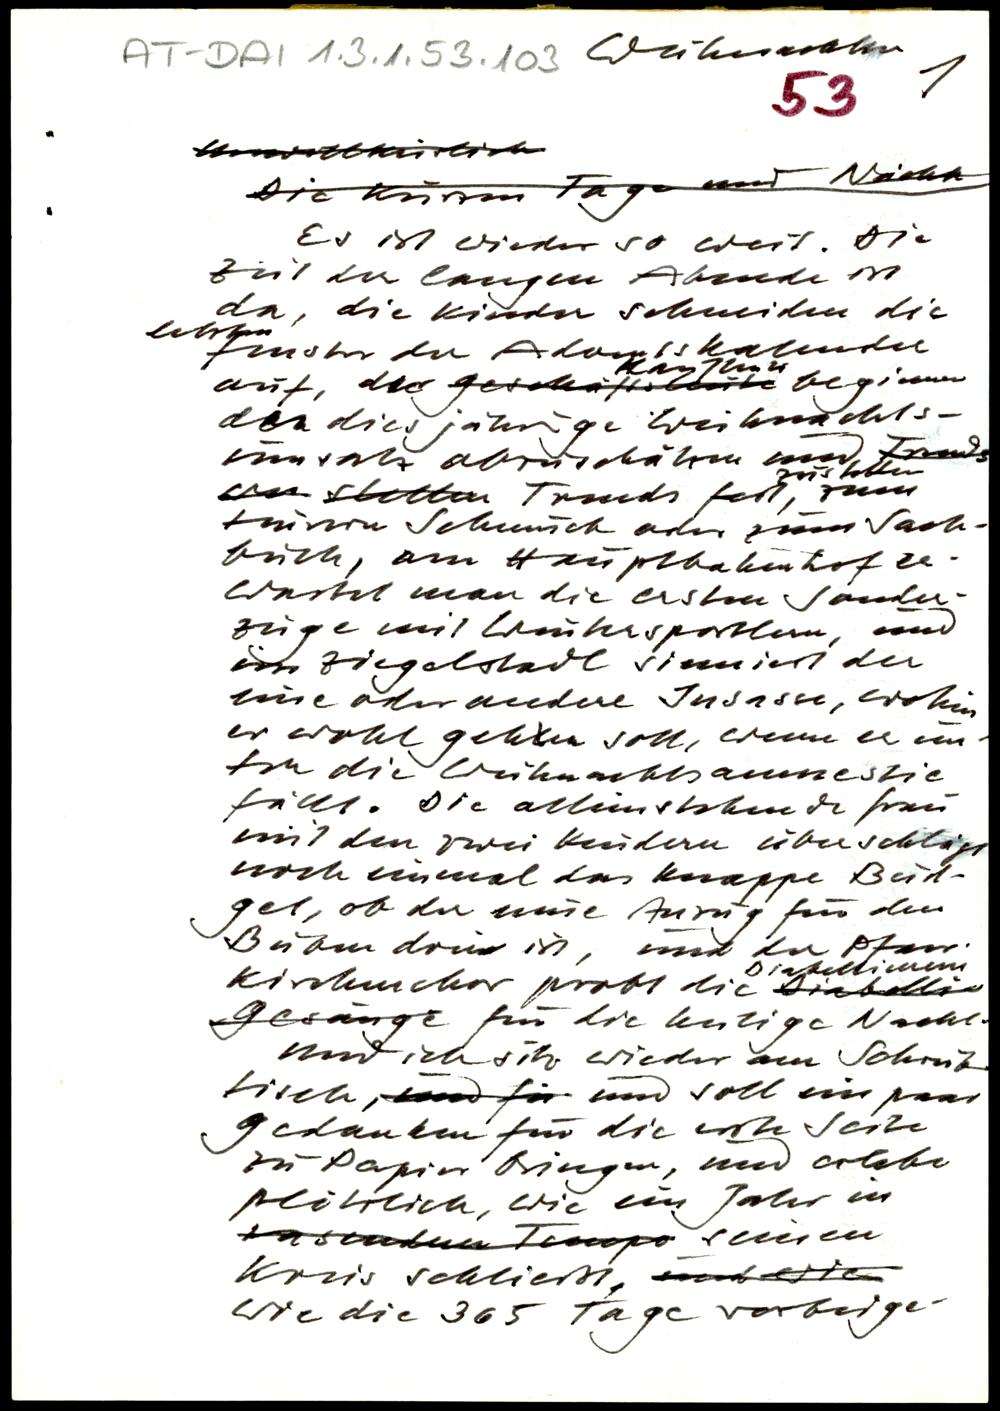 AT-DAI 1.3.1.53.103 Weihnachten
53 1
Unwillkürlich
Die kurzen Tage und Nächte
Es ist wieder so weit. Die
Zeit der langen Abende ist
da, die Kinder schneiden die
letzten
Fenster der Adventskalender
Kaufleute
auf, die Geschäftsleute beginnen
den diesjährigen Weihnachts-
umsatz abzuschätzen und Trends
zustellen
stellen Trends fest, zum
teuren Schmuck oder zum Sach-
buch, am Hauptbahnhof er-
wartet man die ersten Sonder-
züge mit Wintersportlern, und
im Ziegelstadl sinniert der
eine oder andere Insasse, wohin
er wohl gehen soll, wenn er un-
ter die Weihnachtsamnestie
fällt. Die alleinstehende Frau
mit den zwei Kindern überschlägt
noch einmal das knappe Bud-
get, ob der neue Anzug für den
Buben drin ist, und der Pfarr-
kirchenchor probt die
Diabelli-
Gesänge für die heilige Nacht.
Und ich sitz wieder am Schreib-
tisch, und für und soll ein paar
Gedanken für die erste Seite
zu Papier bringen, und erlebe
plötzlich, wie ein Jahr in
rasendem Tempo seinen
Kreis schließt, und wie
wie die 365 Tage vorbeige-